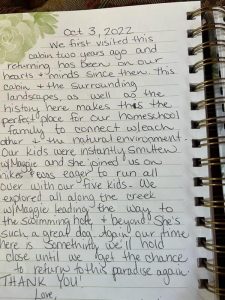 Oct 3, 2022
We first visited this
cabin two years ago and
returning has been on our
hearts + minds since then. This
cabin & the surrounding
landscapes, as well as the
history here makes this the
perfect place for our homeschool
family to connect w/each
other & the natural environment.
Our kids were instantly smitten
w/Maggie and she joined us on
hikes & was eager to run all
over with our five kids. We
explored all along the creek
w/Maggie leading the way to
the swimming hole & beyond. She's
such a great dog. Again our time
here is something we'll hold
close until we get the chance
to return to this paradise again.
THANK YOU!
Love,